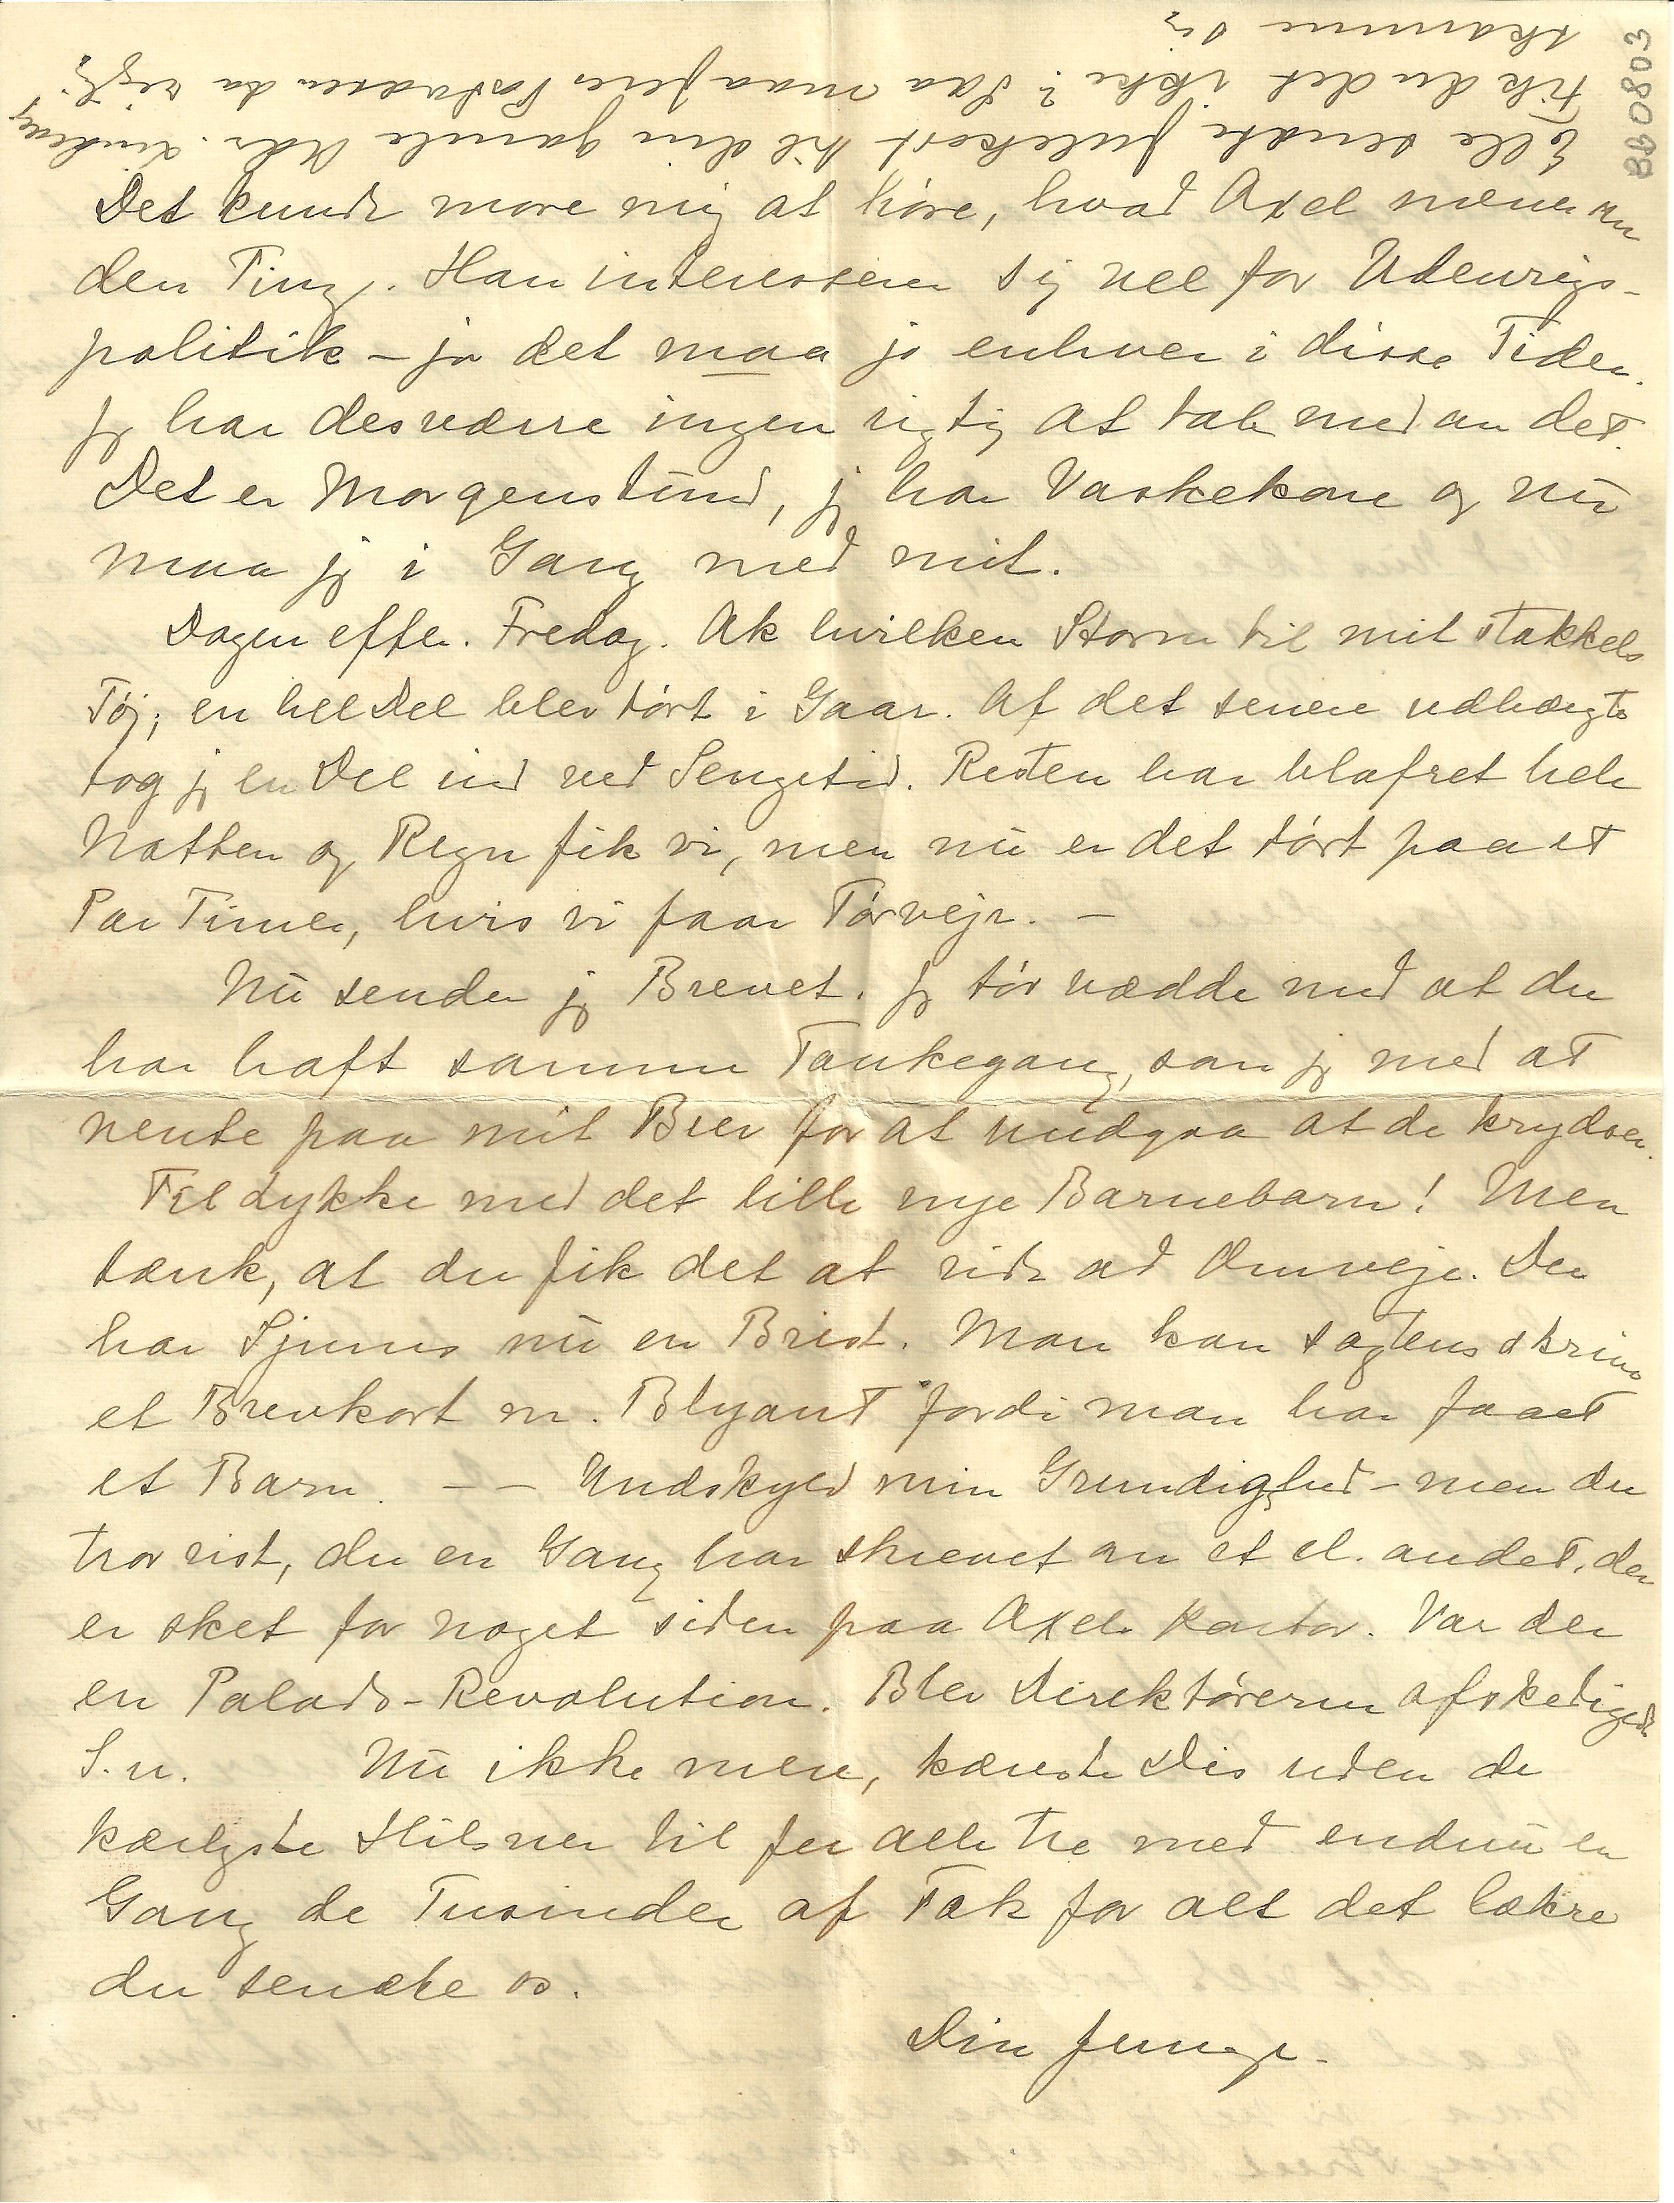 Elle sendte Julekort til din gamle Adr. Lindevej
Fik du det ikke? Saa maa Jeres Postvæsen da rigtig
skamme sig
BB0803
Det kunde more mig at høre, hvad Axel mener om
den Ting. Han interesserer sig vel for Udenrigs-
politik – ja det maa jo enhver i disse Tider.
Jeg har desværre ingen rigtig at tale med om det.
Det er Morgenstund, jeg har Vaskekone og nu
maa jeg i Gang med mit.
Dagen efter. Fredag. Ak hvilken Storm til mit stakkels
Tøj; en hel Del blev tørt i Gaar. Af det senere udhængte
tog jeg en Del ind ved Sengetid. Resten har blafret hele
Natten og Regn fik vi, men nu er det tørt paa et
Par Timer, hvis vi faar Tørvejr. –
Nu sender jeg Brevet. Jeg tør vædde med at du
har haft samme Tankegang, som jeg med at
vente paa mit Brev for at undgaa at de krydser.
Til Lykke med det lille nye Barnebarn! Men
tænk, at du fik det at vide ad Omveje. Der
har Sjums nu en Brist. Man kan sagtens skrive
et Brevkort m. Blyant fordi man har faaet
et Barn. – – Undskyld min Grundighed – men du
tror vist, du en Gang har skrevet om et el. andet, der
er sket for noget siden paa Axels Kontor. Var der
en Palads-Revolution. Blev Direktørerne afskediget
S.u. Nu ikke mere, kæreste Dis uden de
kærligste Hilsner til Jer alle tre med endnu en
Gang de Tusinder af Tak for alt det lækre
du sendte os.
Din Junge.